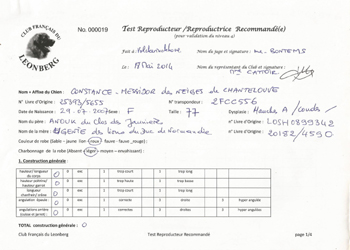 CLUB FRANÇAIS DU LEONBERG
No. 000019
Test Reproducteur /Reproductrice Recommandé(e)
(pour validation du niveau 4)
Fait à
Nom du juge et signature : M. BONTEMS
Le : 18 Mai 2014
Nom du représentant du Club et signature :
Nom + Affixe du Chien : CONSTANCE - DES NEIGES DE CHANTELOUVE
N° Livre d'Origine : 25393/5655
N° transpondeur : 2FCC556
Date de Naissance : 29.07.2007
Sexe : F
Taille : 77
Dysplasie : Hanche A / coude /
Nom du père : ANOUK du Clos des
N° Livre d'Origine : LOSH0899342
Nom de la mère : de Normandie
N° Livre d'Origine : 20182/4590
Couleur de robe (sable - jaune lion - roux - fauve - fauve_rouge) :
Charbonnée de la robe (Absent - léger - moyen - envahissant) :
1. Construction générale :
hauteur/longueur du corps 0 0 exc 1 trop court 1 trop long
0 exc 1 trop haute 1 trop basse
longueur chanfrein/crâne 0 0 exc 1 trop court 1 trop long
angulation épaule : 0 0 exc 1 correcte 2 droite 3 hyper angulée
angulations arrière 0 0 exc 1 correctes 2 droites 3 hyper angulées
TOTAL construction générale : 0
Club Français du Leonberg
Test Reproducteur Recommandé
page 1/4